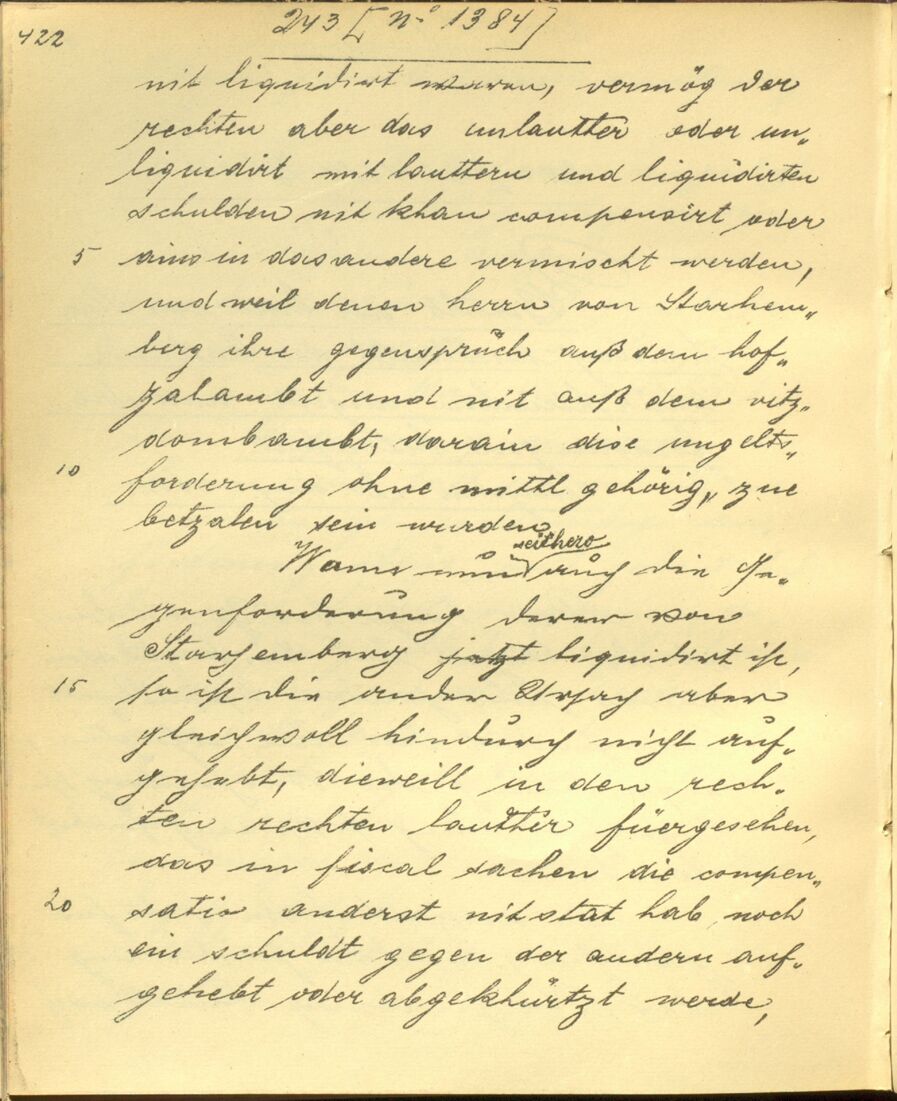 422
243 [ nº 1384 ]
nit liquidirt waren, vermög der
rechten aber das unlautter oder un„
liquidirt mit lauttern und liquidirten
schulden nit khan compensirt oder
5 ains in das andere vermischt werden,
und weil denen herrn von Starhem„
berg ihre gegensprüch auß dem hof„
zalambt und nit auß dem vitz„
dombambt, darain dise ungelts„
10 forderung ohne mittl gehörig, zue
betzalen sein wurden
Wann nun seithero auch die Ge„
genforderung deren von
Starhemberg jetzt liquidirt ist,
15 so ist die ander Ursach aber
gleichwoll hindurch nicht auf„
gehebt, dieweill in den rech„
ten rechten lautter füergesehen,
das in fiscal sachen die compen„
20 satio anderst nit stat hab noch
ein schuldt gegen der andern auf„
gehebt oder abgekhürtzt werde,